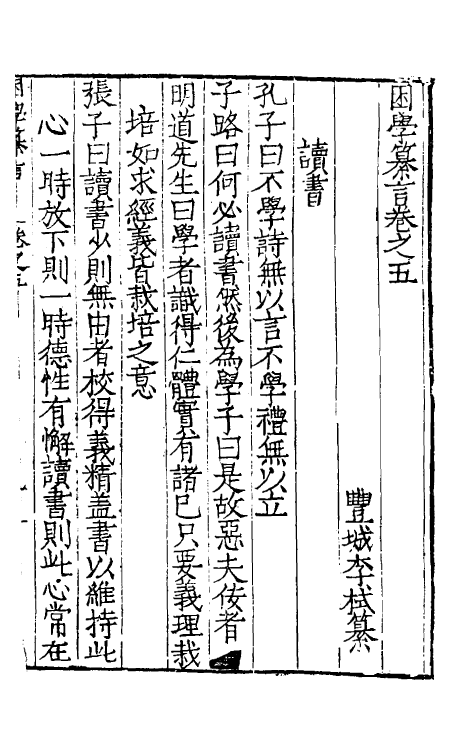 困學纂言卷之五
豐城李栻纂
讀書
孔子曰不學詩無以言不學禮無以立
子路曰何必讀書然後為學子曰是故惡夫佞者
明道先生曰學者識得仁體實有諸已只要義理栽
培如求經義皆栽培之意
張子曰讀書少則無由者校得義精盖書以維持此
心一時放下則一時德性有懈讀書則此心常在
困學纂言
卷之五